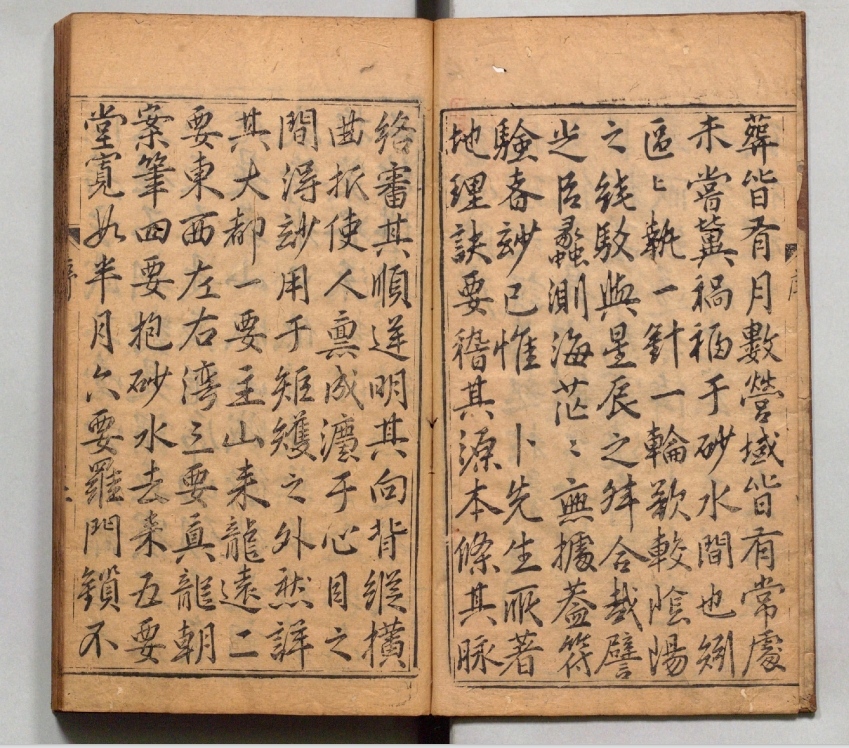 葬皆有月數營域皆有常處
未嘗冀禍福于砂水間也矧
區〻執一針一輪歡較陰陽
之綫駮與星辰之舛合哉譬
㞢㠯蠡測海茫〻無據蓋符
驗玅已惟 卜先生所著
地理訣要稽其源本條其脉
絡審其順逆明其向背縱横
曲折使人稟成灋于心目之
間淂玅用于矩矱之外然詳
其大都一要主山来龍遠二
要東西左右湾三要真龍朝
案筆四要抱砂水去来五要
堂寬如半月六要羅門鎖不
序